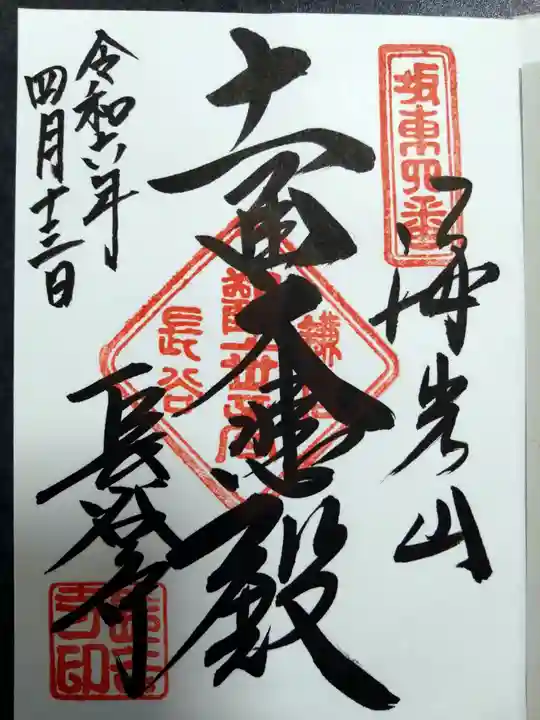 坂東四番
海光山
十一面大悲殿
鎌倉
観世音
長谷
長谷寺
令和六年
四月十三日